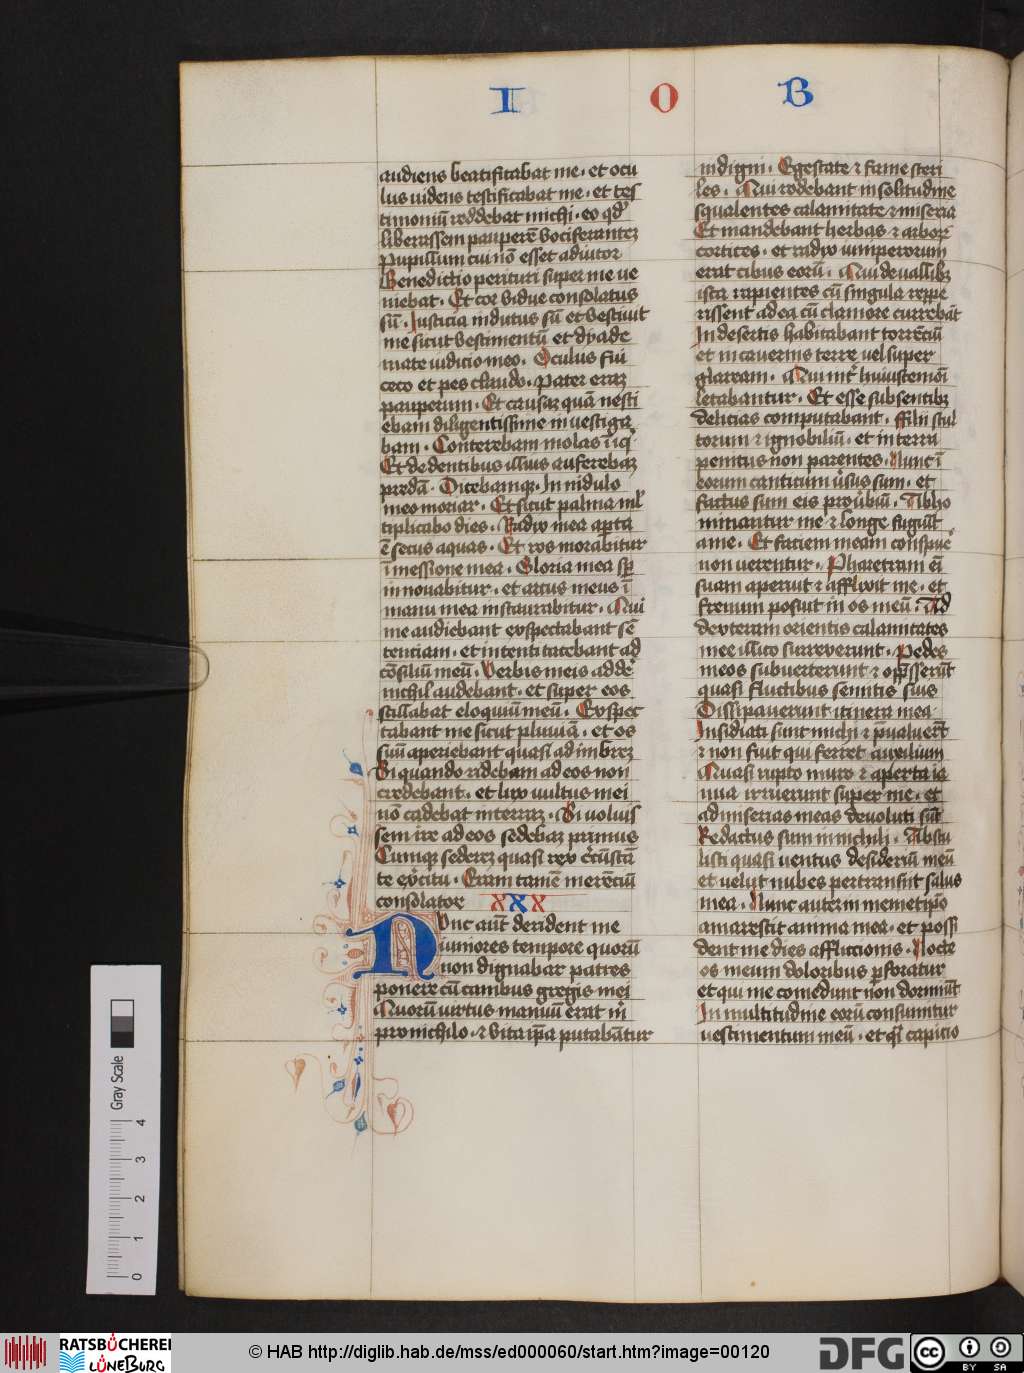 I O B
audiens beatificabat me · et ocu
lus uidens testificabat me · et tes
timoniū reddebat michi · eo qđ
liberassem pauperē vociferantez
Pupillum cui nō esset adiutor
Benedictio perituri super me ue
niebat · Et cor vidue consolatus
sū · Iusticia indutus sū et vestiuit
me sicut vestimentū et dyade
mate iudicio meo · Oculus fui
ceco et pes claudo · Pater eraz
pauperum · Et causaz quā nesti
ebam diligentissime inuestiga
bam · Conterebam molas īiq'
Et de dentibus illius auferebaz
predā · Dicebamqz · In nidulo
meo moriar · Et sicut palma ml'
tiplicabo dies · Radix mea apta
ē secus aquas · Et ros morabitur
ī messione mea · Gloria mea sp
innouabitur · et arcus meus ī
manu mea instaurabitur · Qui
me audiebant expectabant sē
tenciam · et intenti tacebant ad
cōsiliū meū · Verbis meis adde'
nichil audebant · et super eos
stillabat eloquiū meū · Expec
tabant me sicut pluuiā · et os
suū aperiebant quasi ad imbrez
Si quando ridebam ad eos non
credebant · et lux uultus mei
nō cadebat in terraz · Si voluis
sem ire ad eos sedebaz primus
Cumqz sederez quasi rex cīcūstā
te exīcitu · Eram tamē merēciū
consolator XXX
Nunc aūt derident me
iuniores tempore quorū
non dignabar patres
ponere cū canibus gregis mei
Quorū uirtus manuū erat m'
pro nichilo · et vita ipa putabātur
indigni · Egestate et fame steri
les · Qui rodebant in solitudine
squalentes calamitate et miseria
Et mandebant herbas et arborū
cortices · et radix iuniperorum
erat cibus eorū · Qui de uallibz
ista rapientes cū singula reppe
rissent ad ea cū clamore currebāt
In desertis habitabant torrēciū
et in cauernis terre uel super
glaream · Qui int' huiuscemōi
letabantur · Et esse sub sentibz
delicias computabant · ffilii stul
torum et ignobiliū · et in terra
penitus non parentes · Nunc ī
eorum canticum v'sus sum · et
factus sum eis prou'biū · Abho
minantur me et longe fugiūt
a me · Et faciem meam conspue'
non uerentur · Pharetram eī
suam aperuit et afflixit me · et
frenum posuit in os meū · Ad
dexteram orientis calamitates
mee illico surrexerunt · Pedes
meos subuerterunt et opp̄sserūt
quasi fluctibus semitis suis
Dissipauerunt itinera mea ·
Insidiati sunt michi et p̄ualuerūt
et non fuit qui ferret auxilium
Quasi rupto muro et aperta ia
nua irruerunt super me · et
ad miserias meas deuoluti sūt
Redactus sum in nichili · Abstu
listi quasi uentus desideriū meū
et velut nubes pertransiit salus
mea · Nunc autem in memetipō
amarescit anima mea · et possi
dent me dies afflictionis · Nocte
os meum doloribus pforatur
et qui me comedunt non dormiūt
In multitudine eorū consumitur
uestimentum meū · et qi capicio
Gray Scale
0 1 2 3 4
RATSBÜCHEREI
LÜNEBURG
© HAB http://diglib.hab.de/mss/ed000060/start.htm?image=00120
DFG
cc BY SA